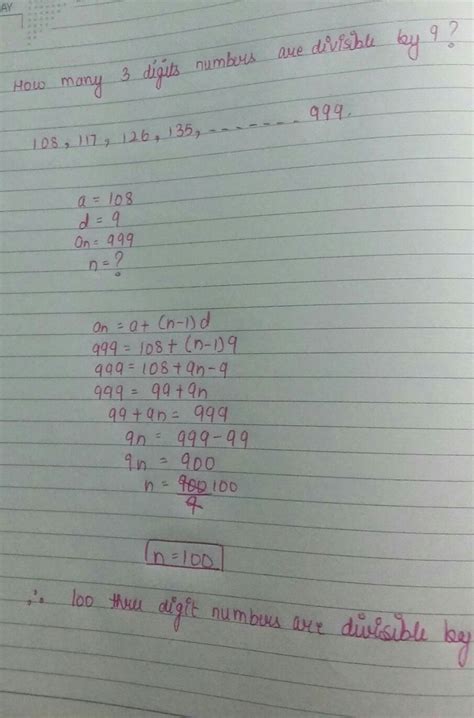 AY
How many 3 digits numbers are divisible by 9?
108, 117, 126, 135, - - - - - - - 999.
a = 108
d = 9
an = 999
n = ?
an = a + (n-1)d
999 = 108 + (n-1)9
999 = 108 + 9n - 9
999 = 99 + 9n
99 + 9n = 999
9n = 999 - 99
9n = 900
n = 900 100
9
n = 100
∴ 100 three digit numbers are divisible by